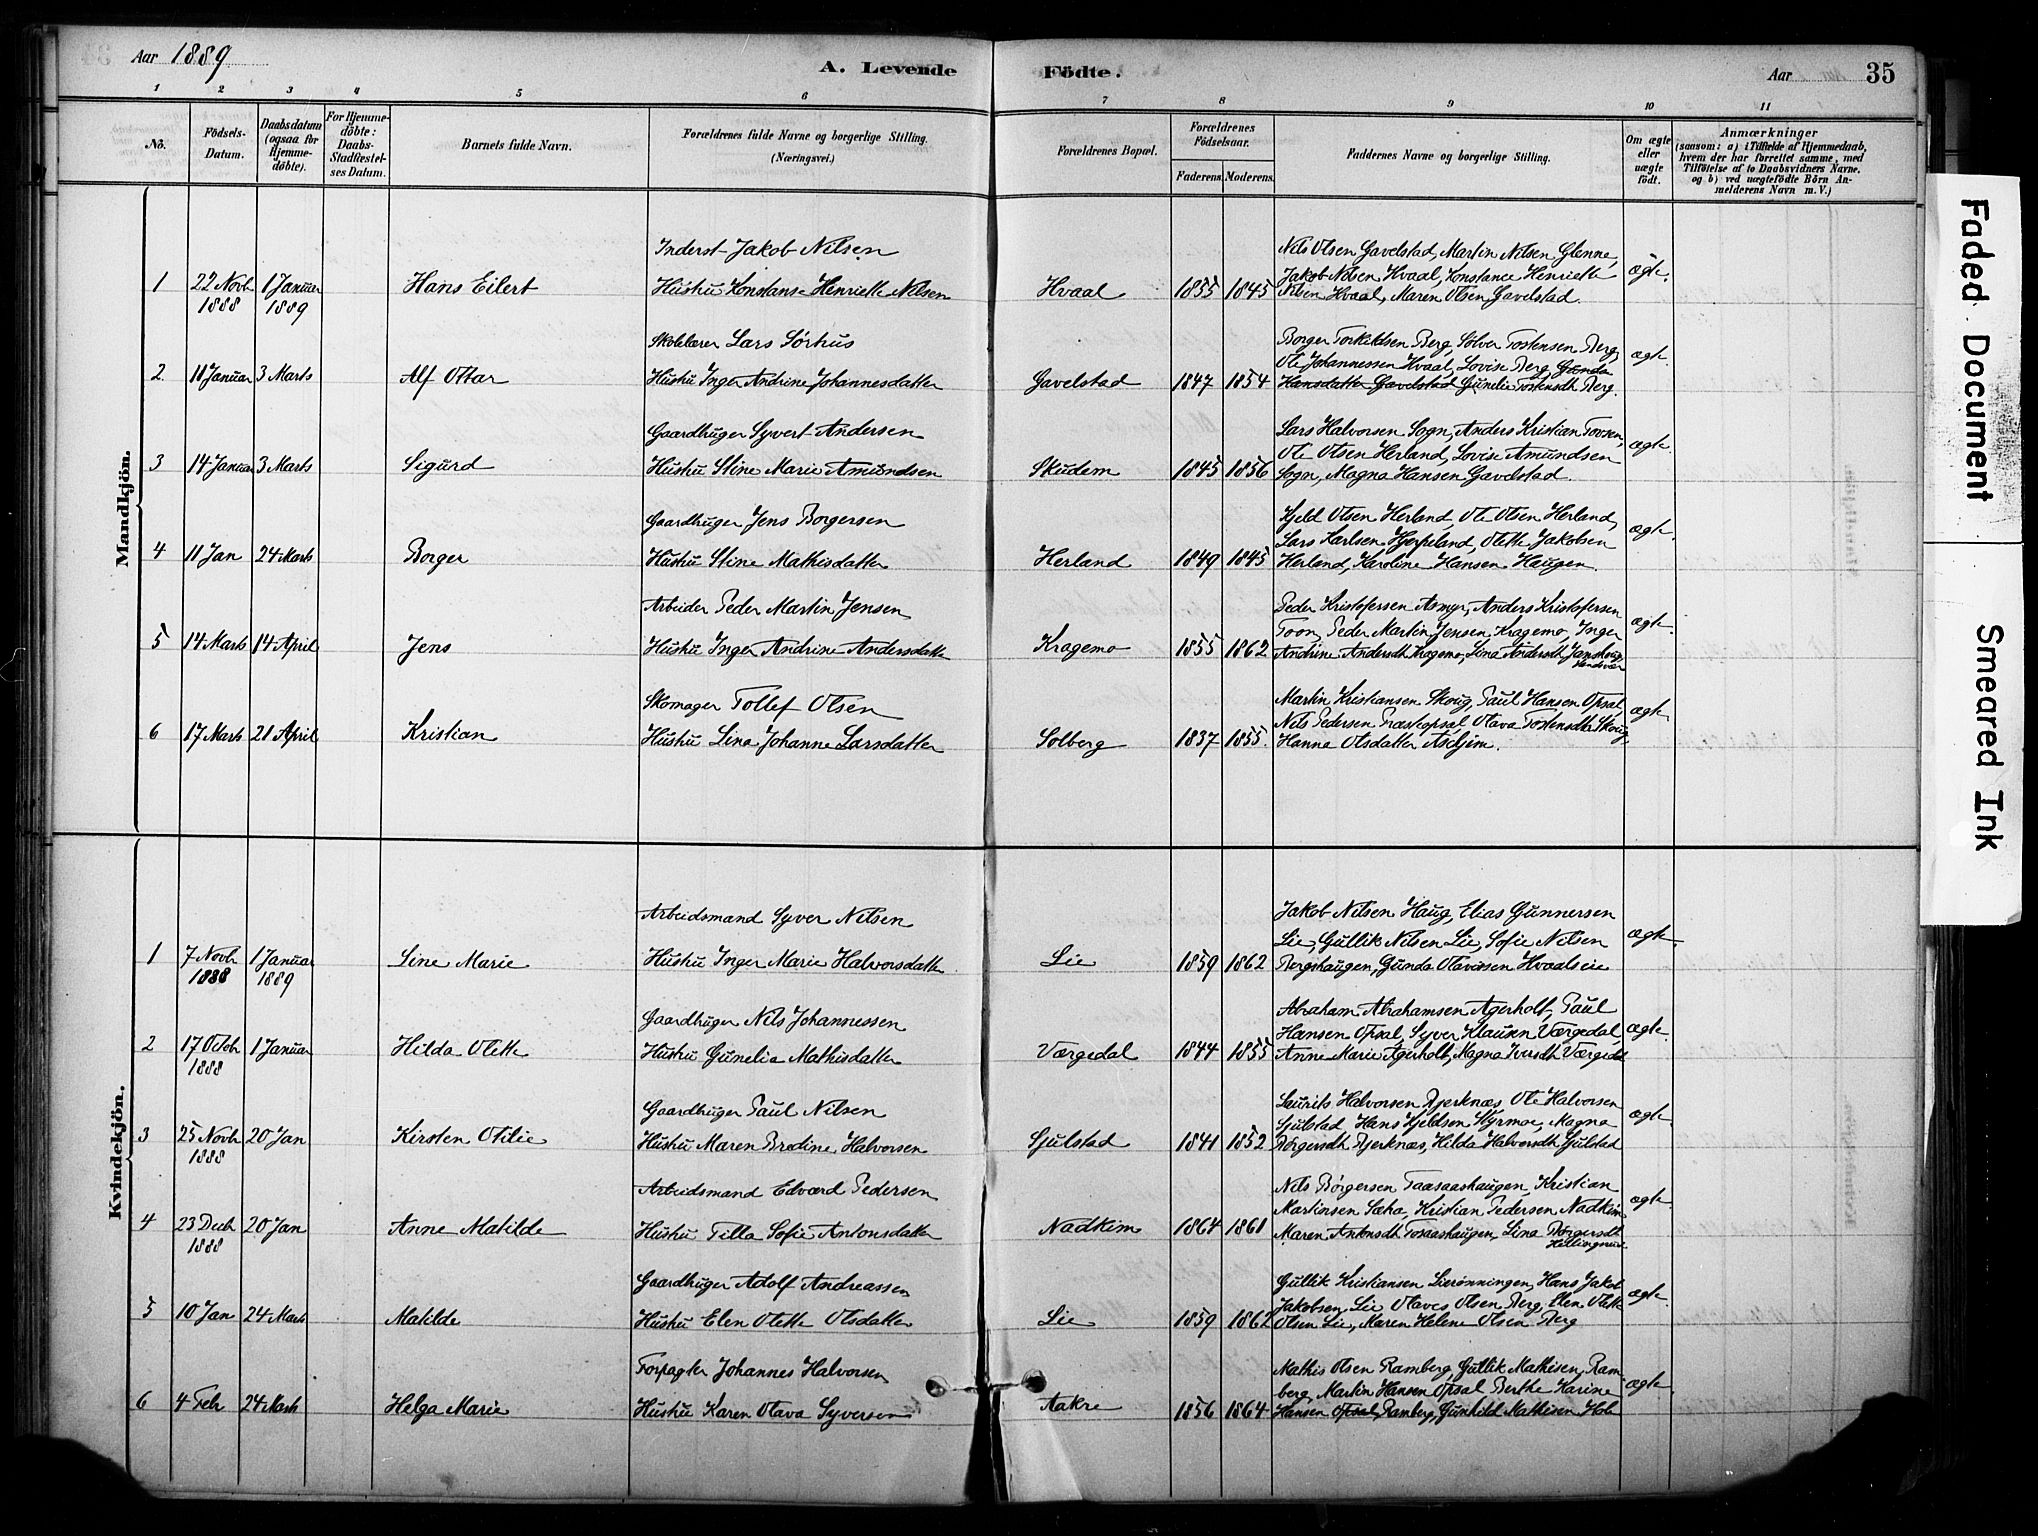 Aar 1889
A. Levende Födte.
Aar
35
1 2 3 4 5 6 7 8 9 10 11
No.
Födsels-Datum.
Daabsdatum (ogsaa for Hjemme-döbte).
For Hjemme-döbte: Daabs-Stadfæstel-ses Datum.
Barnets fulde Navn.
Forældrenes fulde Navne og borgerlige Stilling. (Næringsvei.)
Forældrenes Bopæl.
Forældrenes Födselsaar.
Faderens. Moderens.
Faddernes Navne og borgerlige Stilling.
Om ægte eller uægte födt.
Anmærkninger
(saasom: a) i Tilfælde af Hjemmedaab, hvem der har forrettet samme, med Tilföielse af to Daabsvidners Navne, og b) ved uægtefödte Börn An-melderens Navn m. V.)
Mandkjön.
Inderst Jakob Nilsen
Nils Olsen Gavelstad, Martin Nilsen Glenne,
1 22 Novb 1 Januar Hans Eilert Hustru Konstanse Henriette Nilsen Hvaal 1855 1845 Jakob Nilsen Hvaal, Konstance Henriette ægte.
1888 1889 Nilsen Hvaal, Maren Olsen Gavelstad.
Skolelærer Lars Sørhus
Borger Torkildsen Berg, Sølver Tostensen Berg,
Ole Johannessen Hvaal, Lovise Berg Gunda ægte
2 18 Januar 3 Marts Alf Ottar Hustru Inger Andrine Johannesdatter Gavelstad 1847 1854 Hansdatter Gavelstad Gunelie Tostensdt Berg.
Gaardbruger Syvert Andersen
Lars Halvorsen Sogn, Anders Kristian Tovsen,
Ole Olsen Herland, Lovise Amundsen ægte.
3 14 Januar 3 Marts Sigurd Hustru Stine Marie Amundsen Skudem 1845 1856 Sogn, Magna Hansen Gavelstad.
Gaardbruger Jens Borgersen
Kjeld Olsen Herland, Ole Olsen Herland,
Lars Karlsen Hjerpeland, Olette Jakobsen ægte.
4 11 Jan 24 Marts Borger Hustru Stine Mathisdatter Herland 1849 1845 Herland, Karoline Hansen Haugen.
Arbeider Peder Martin Jensen
Peder Kristofersen Asmyr, Anders Kristofersen
Toon, Peder Martin Jensen, Kragemo, Inger ægte.
5 14 Marts 14 April Jens Hustru Inger Andrine Andersdatter Kragemo 1855 1862 Andrine Andersdt Kragemo, Lina Andersdt Jarskoug
Skomager Tollef Olsen
Martin Kristiansen Skoug, Paul Hansen Opsal,
Nils Pedersen Præstopsal Olava Tostensdtr Skoug, ægte
6 17 Marts 21 April Kristian Hustru Lina Johanne Larsdatter Solberg 1837 1855. Hanna Olsdatter Askjem.
Kvindekjön.
Arbeidsmand Syver Nilsen
Jakob Nilsen Haug, Elias Gunnersen
Lie, Gullik Nilsen Lie, Sofie Nilsen ægte
1 7 Novb 1 Januar Line Marie Hustru Inger Marie Halvorsdatter Lie 1859 1862 Bergshaugen, Gunda Olavesen Hvaalseie
1888 1889
Gaardbruger Nils Johannessen
Abraham Abrahamsen Agerholt, Paul
Hansen Opsal, Syver Klausen Værgedal, ægte.
2 17 Octob 1 Januar Hilda Olette Hustru Gunelia Mathisdatter Værgedal 1844 1855 Anne Marie Agerholt, Magna Iversdt Værgedal
1888
Gaardbruger Paul Nilsen
Laurits Halvorsen Bjerknæs, Ole Halvorsen
Gjulstad Hans Kjeldsen Styrmoe, Magna ægte.
3 25 Novb 20 Jan Kirsten Otilie Hustru Maren Brodine Halvorsen Gjulstad 1841 1852 Børgersdt Bjerknæs, Hilda Halvorsdt Gjulstad
1888
Arbeidsmand Edvard Pedersen
Nils Børgersen Taasaashaugen, Kristian
Martinsen Sæha, Kristian Pedersen Nadkim ægte
4 23 Decb 20 Jan Anne Matilde Hustru Tilla Sofie Antonsdatter Nadkim 1864 1861 Maren Antonsdt Toraashaugen, Lina Børgersdt
1888
Gaardbruger Adolf Andreassen
Gullik Kristiansen Lierønningen, Hans Jakob
Jakobsen Lie Olaves Olsen Berg, Elen Olette ægte.
5 10 Jan 24 Marts Matilde Hustru Elen Olette Olsdatter Lie 1859 1862 Olsen Lie, Maren Helene Olsen Berg
Forpagter Johannes Halvorsen
Mathis Olsen Ramberg, Gullik Mathisen, Ram
berg, Martin Hansen Opsal Berthe Karine ægte.
6 4 Feb 24 Marts Helga Marie Hustru Karen Olava Syversen Aakre 1856 1864 Hansen Opsal, Ramberg, Gunhild Mathisen Hob
Faded Document
Smeared Ink